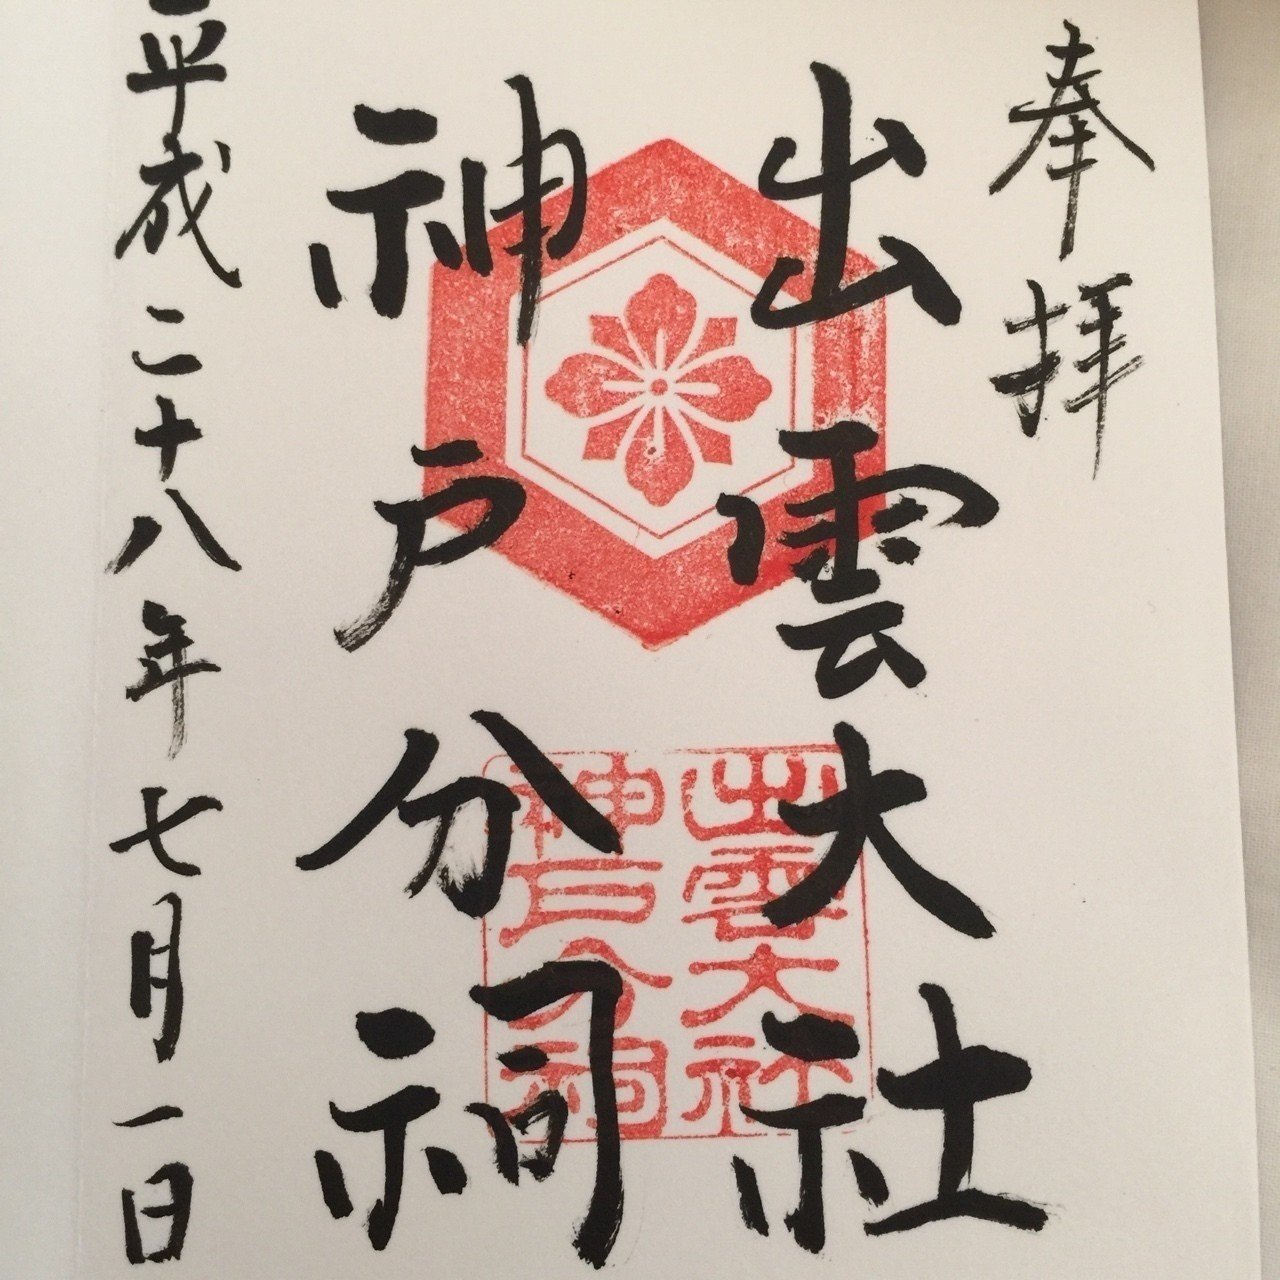 奉拝
出雲大社
神戸分祠
平成二十八年七月一日
出雲大社
神戸分祠